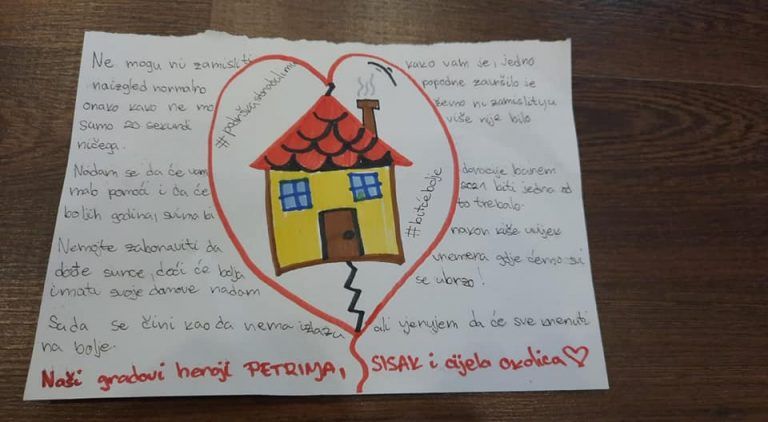 Ne mogu ni zamisliti kako vam se, jedno
naizgled normalno popodne završilo je
onako kako ne mo žemo ni zamisliti, u
samo 20 sekundi više nije bilo
ničega.
Nadam se da će vam donacije barem
malo pomoći i da će 2021 biti jedna od
boljih godina, svima bi to trebalo.
Nemojte zaboraviti da nakon kiše uvijek
dođe sunce, doći će bolja vremena gdje ćemo svi
imati svoje domove nadam se ubrzo!
Sada se čini kao da nema izlaza ali vjerujem da će sve krenuti
na bolje.
#bitćebolje
Naši gradovi heroji PETRINJA, SISAK i cijela okolica